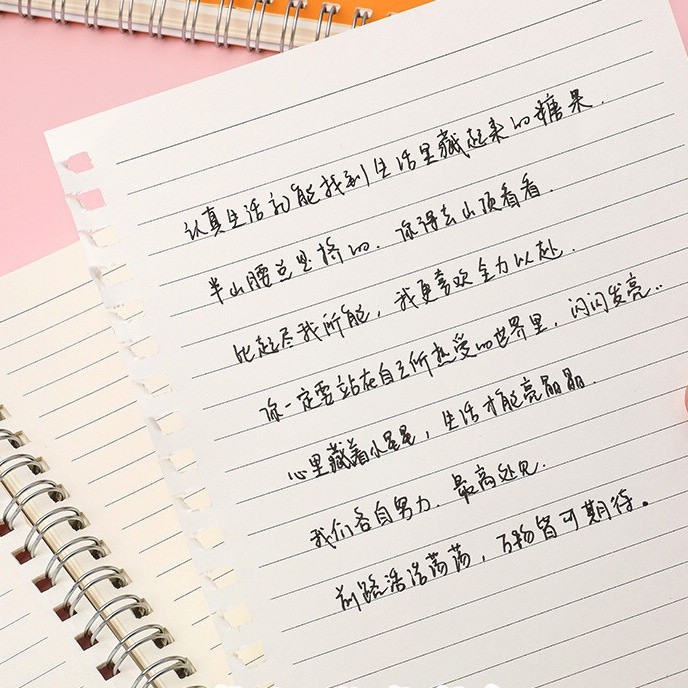 认真生活就能找到生活里藏起来的糖果.
半山腰总是挤的.你得去山顶看看.
比起尽我所能,我更喜欢全力以赴.
你一定要站在自己所热爱的世界里,闪闪发亮..
心里藏着小星星,生活才能亮晶晶.
我们各自努力.最高处见.
前路浩浩荡荡,万物皆可期待。